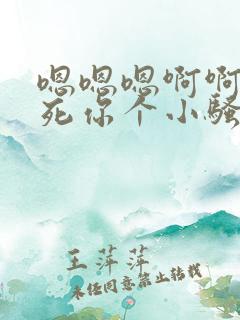 嗯嗯嗯啊啊
死你个小骚
王萍萍
未经同意禁止转载